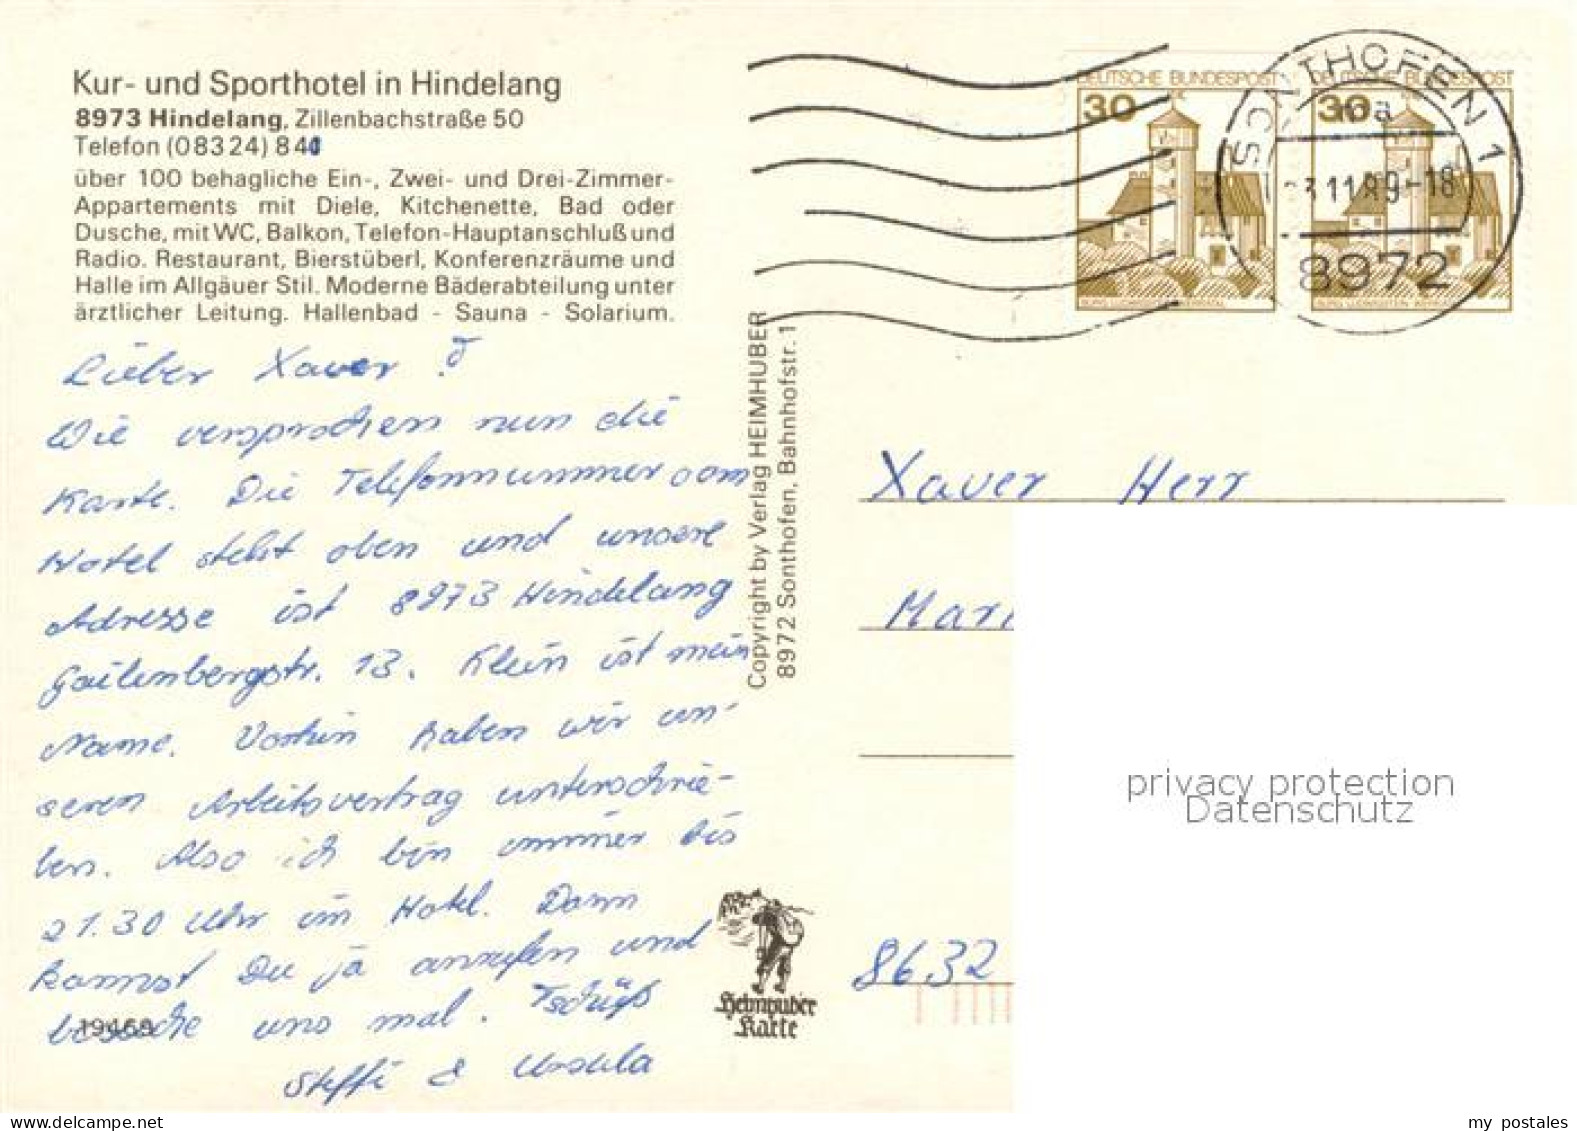 Kur- und Sporthotel in Hindelang
8973 Hindelang, Zillenbachstraße 50
Telefon (08324) 841
über 100 behagliche Ein-, Zwei- und Drei-Zimmer-
Appartements mit Diele, Kitchenette, Bad oder
Dusche, mit WC, Balkon, Telefon-Hauptanschluß und
Radio. Restaurant, Bierstüberl, Konferenzräume und
Halle im Allgäuer Stil. Moderne Bäderabteilung unter
ärztlicher Leitung. Hallenbad - Sauna - Solarium.
Lieber Xaver !
Wie versprochen nun die
Karte. Die Telefonnummer vom
Hotel steht oben und unsere
Adresse ist 8973 Hindelang
Gailenbergstr. 13. Klein ist mein
Name. Vorhin haben wir un-
seren Arbeitsvertrag unterschrie-
ben. Also ich bin immer bis
21.30 Uhr im Hotel. Dann
kannst Du ja anrufen und
besuche uns mal. Tschüß
Steffi & Ursula
19469
Copyright by Verlag HEIMHUBER
8972 Sonthofen, Bahnhofstr. 1
Heimhuber
Karte
DEUTSCHE BUNDESPOST
30
DEUTSCHE BUNDESPOST
30
SONTHOFEN 1
11.89-18
8972
Xaver Herr
Mari
8632
privacy protection
Datenschutz
my postales